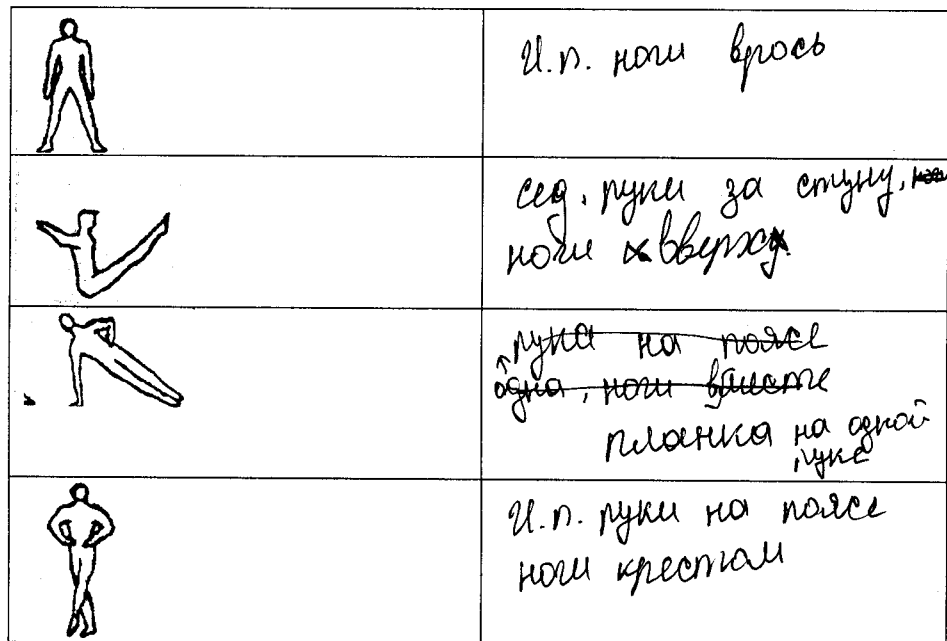 И.п. ноги врось
сед. руки за спуну,
ноги вверх
рука на поясе
одна, ноги вместе
планка на одной
руке
И.п. руки на поясе
ноги крестом